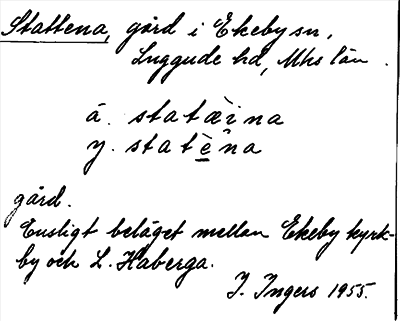 Stattena, gård i Ekeby sn,
Luggude hd, Mhs län.
ä. statæ̀i na
y. statè̂na
gård.
Ensligt beläget mellan Ekeby kyrk-
by och L. Haberga.
I. Ingers 1955.